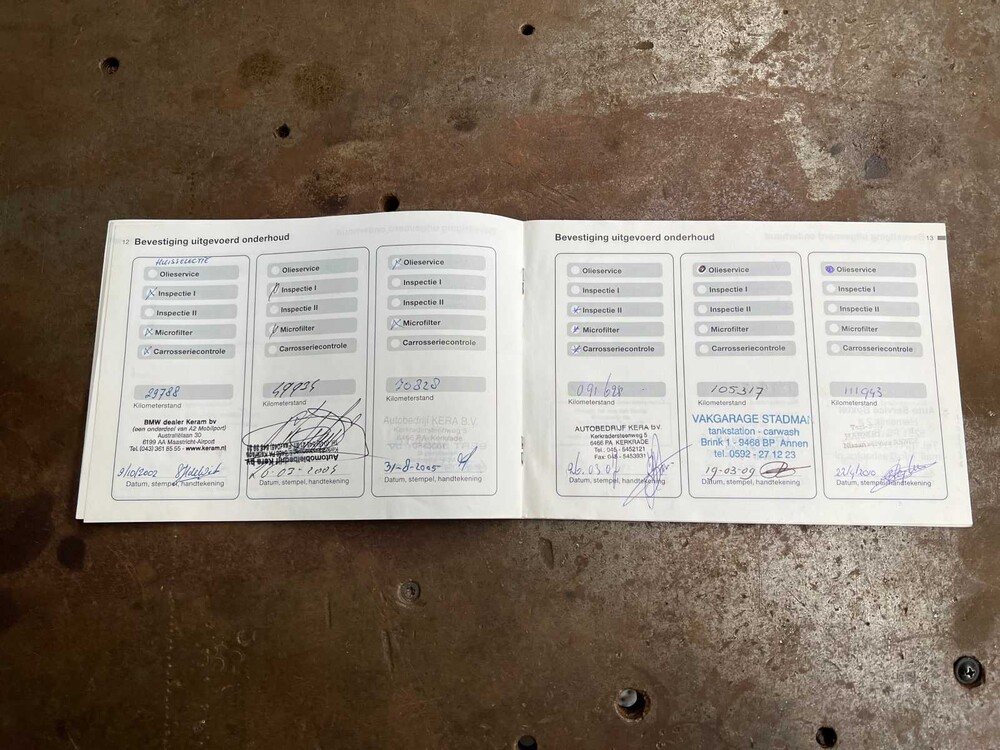 12 Bevestiging uitgevoerd onderhoud
Olieservice
Inspectie I
Inspectie II
Microfilter
Carrosseriecontrole
29788
Kilometerstand
BMW dealer Keram bv
(een onderdeel van A2 Mobiliport)
Australiëlaan 30
6199 AA Maastricht-Airport
Tel. (043) 361 85 55 - www.keram.nl
9/10/2002
Datum, stempel, handtekening
Olieservice
Inspectie I
Inspectie II
Microfilter
Carrosseriecontrole
Kilometerstand
Automobielbedrijf Kera B.V.
Datum, stempel, handtekening
Olieservice
Inspectie I
Inspectie II
Microfilter
Carrosseriecontrole
70828
Kilometerstand
Autobedrijf KERA B.V.
Kerkradersteenweg 5
6466 PA KERKRADE
31-8-2005
Datum, stempel, handtekening
Bevestiging uitgevoerd onderhoud 13
Olieservice
Inspectie I
Inspectie II
Microfilter
Carrosseriecontrole
091628
Kilometerstand
AUTOBEDRIJF KERA B.V.
Kerkradersteenweg 5
6466 PA KERKRADE
Tel.: 045 - 5452121
Fax: 045 - 5453931
26.03.07
Datum, stempel, handtekening
Olieservice
Inspectie I
Inspectie II
Microfilter
Carrosseriecontrole
105317
Kilometerstand
VAKGARAGE STADMA
tankstation - carwash
Brink 1 - 9468 BP Annen
tel. 0592 - 27 12 23
19-03-09
Datum, stempel, handtekening
Olieservice
Inspectie I
Inspectie II
Microfilter
Carrosseriecontrole
111943
Kilometerstand
22/4/2010
Datum, stempel, handtekening